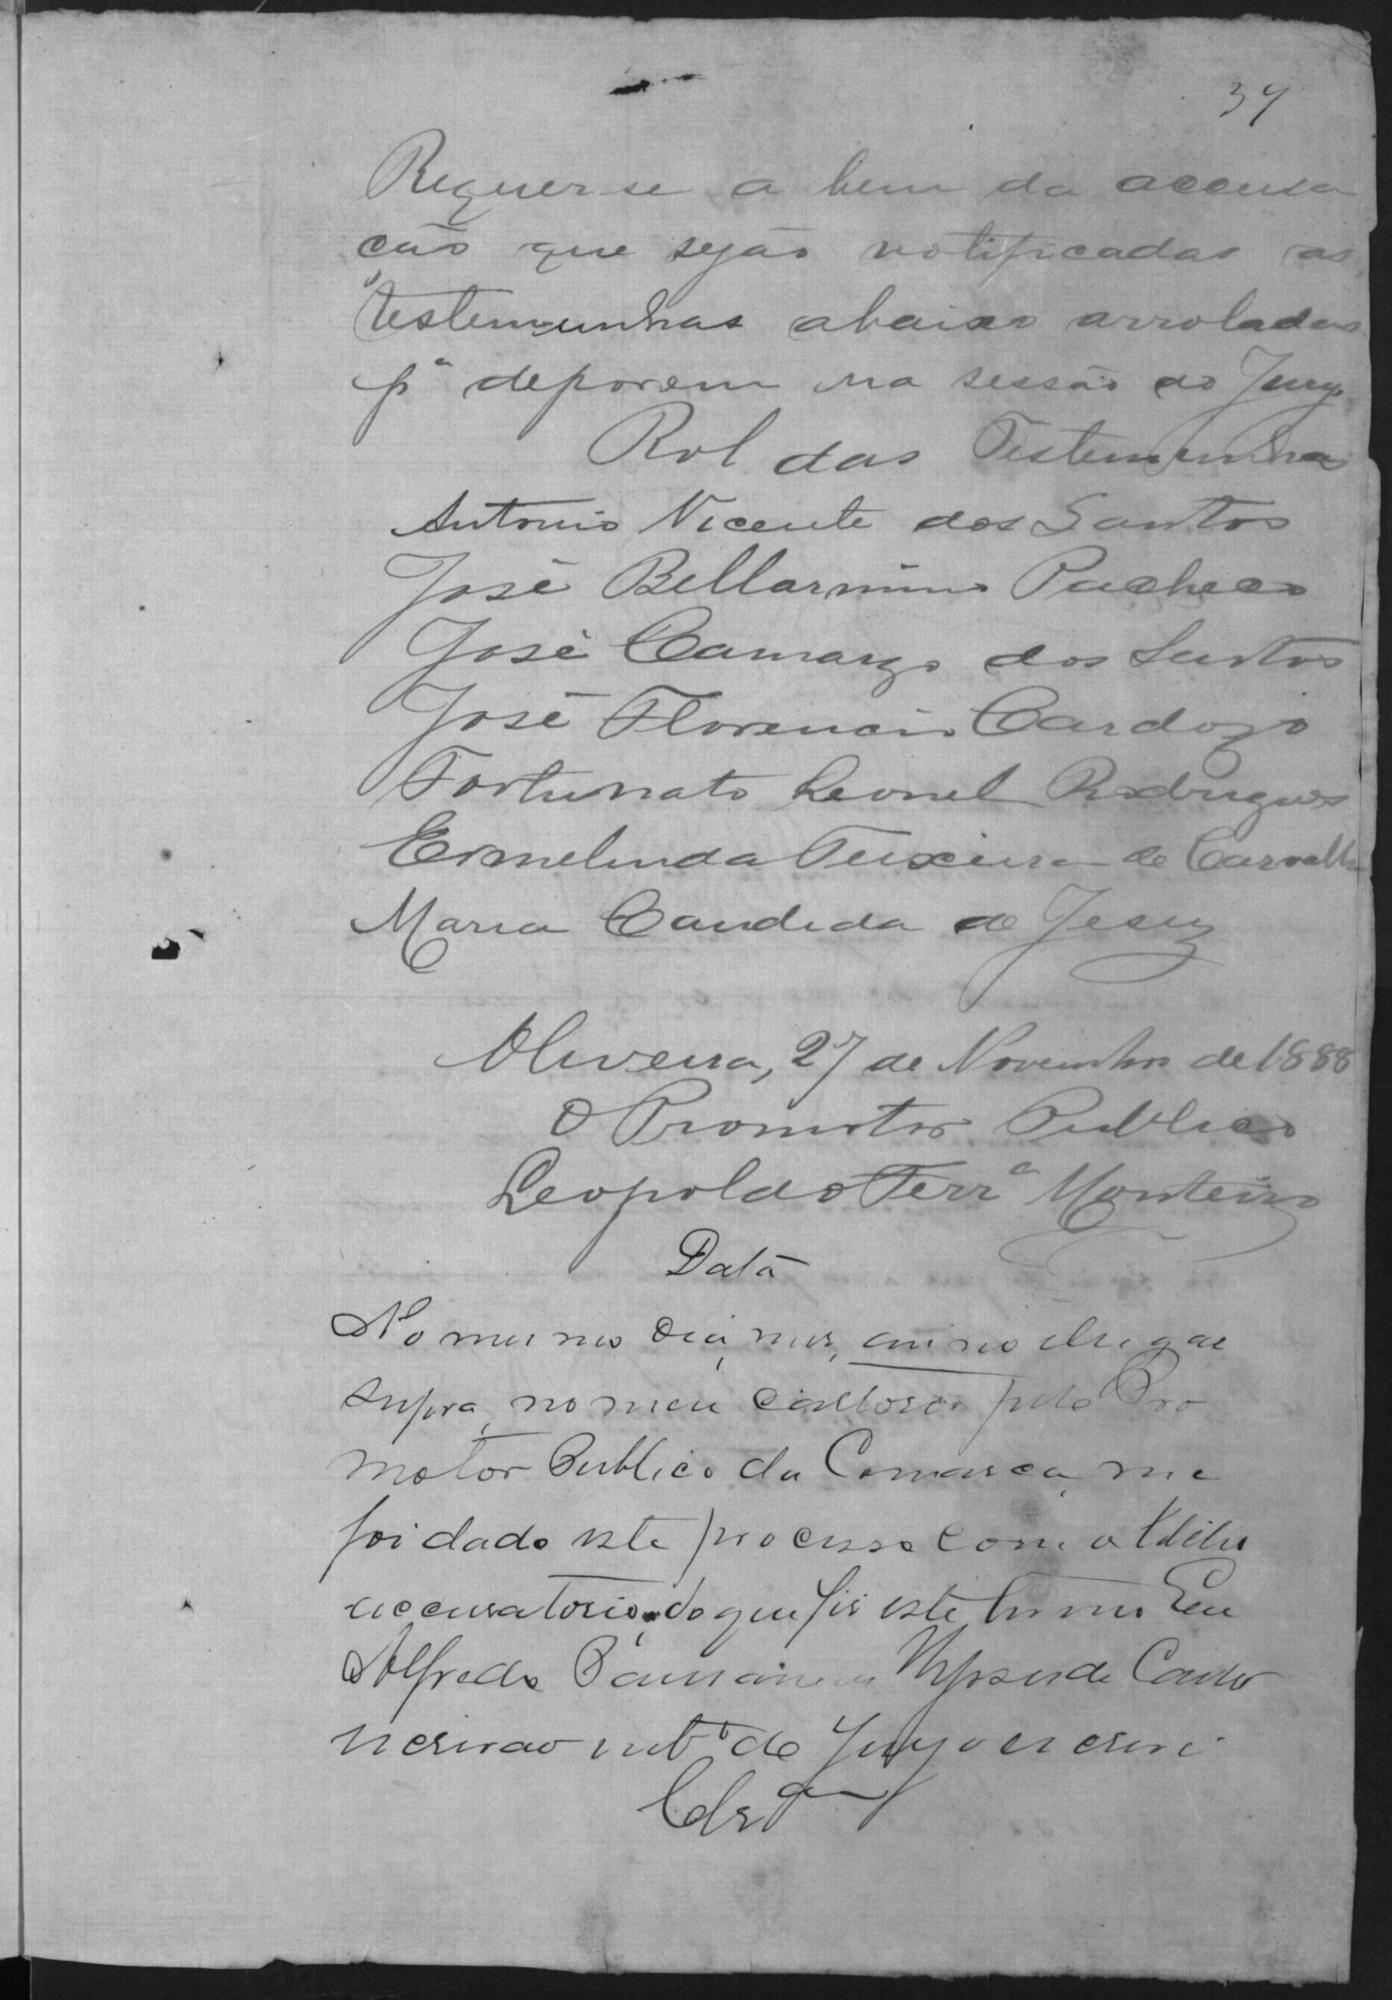 34
Requer-se a bem da accusa
ção que sejão notificadas as
testemunhas abaixo arroladas
pª deporem na sessão do Jury.
Rol das Testemunhas
Antonio Vicente dos Santos
José Bellarmino Pacheco
José Camargo dos Santos
José Florencio Cardozo
Fortunato Leonel Rodrigues
Ermelinda Teixeira de Carvalho
Maria Candida de Jesus
Oliveira, 27 de Novembro de 1888
O Promotor Publico
Leopoldo Ferrª Monteiro
Data
No mesmo dia, mes, anno e lugar
supra, no meu cartorio pelo Pro
motor Publico da Comarca, me
foi dado este processo com o libello
accusatorio, do que fiz este termo Eu
Alfredo de Castro
escrivão intº do Jury o escrevi
Clsªm